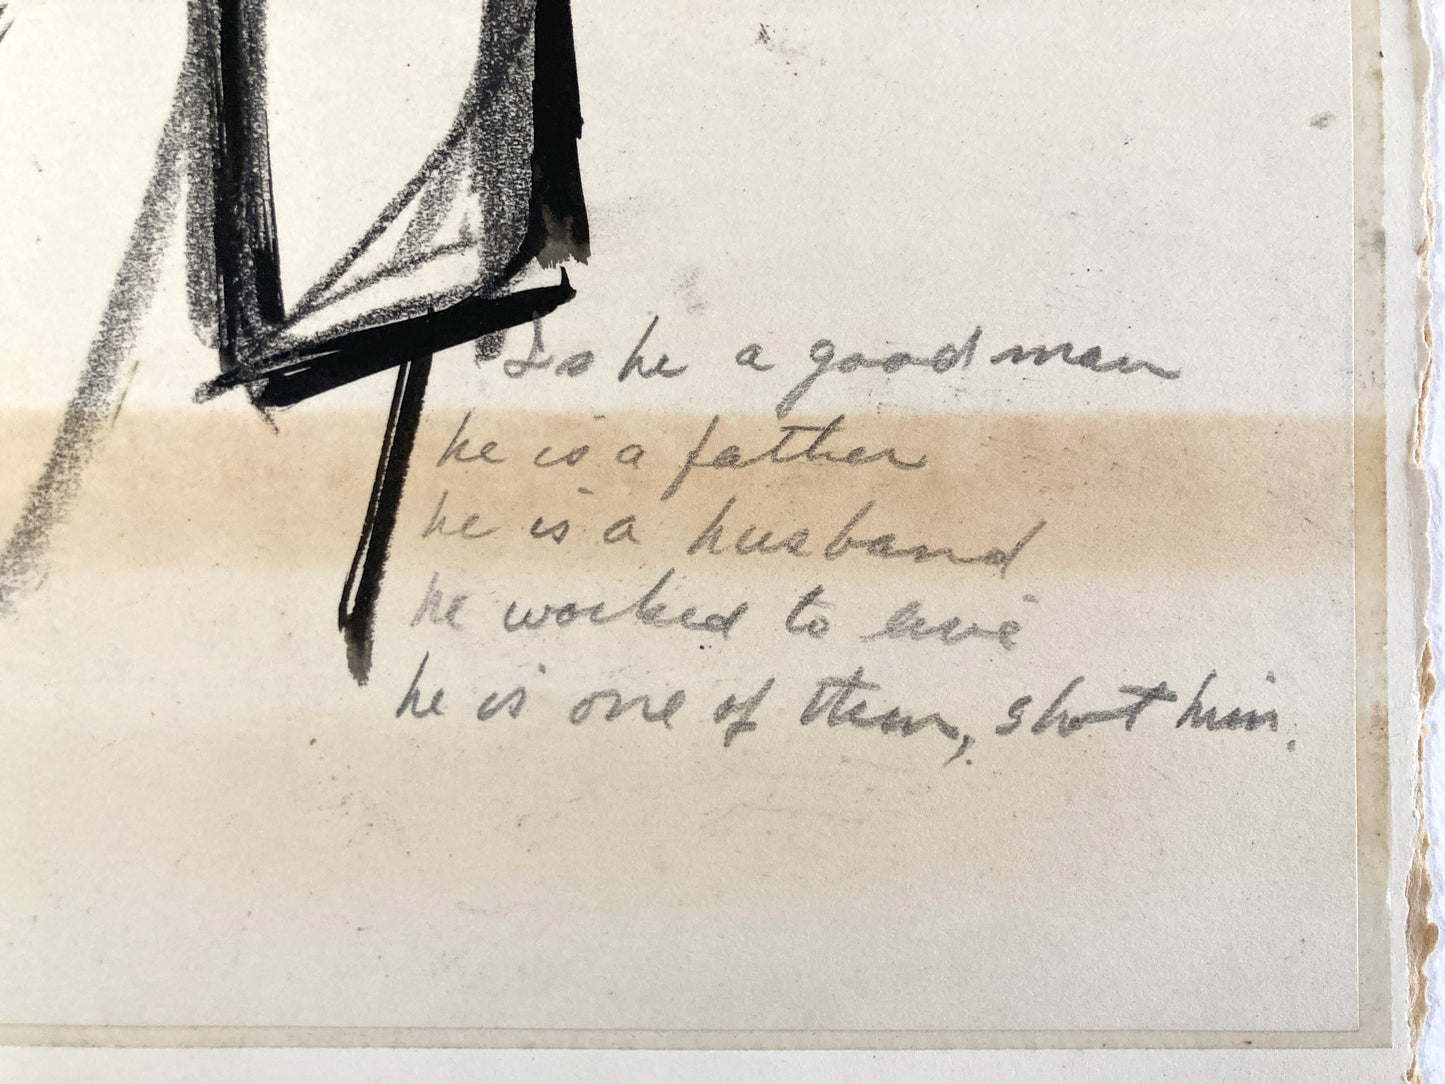 Is he a good man
he is a father
he is a husband
he worked to live
he is one of them, shot him.